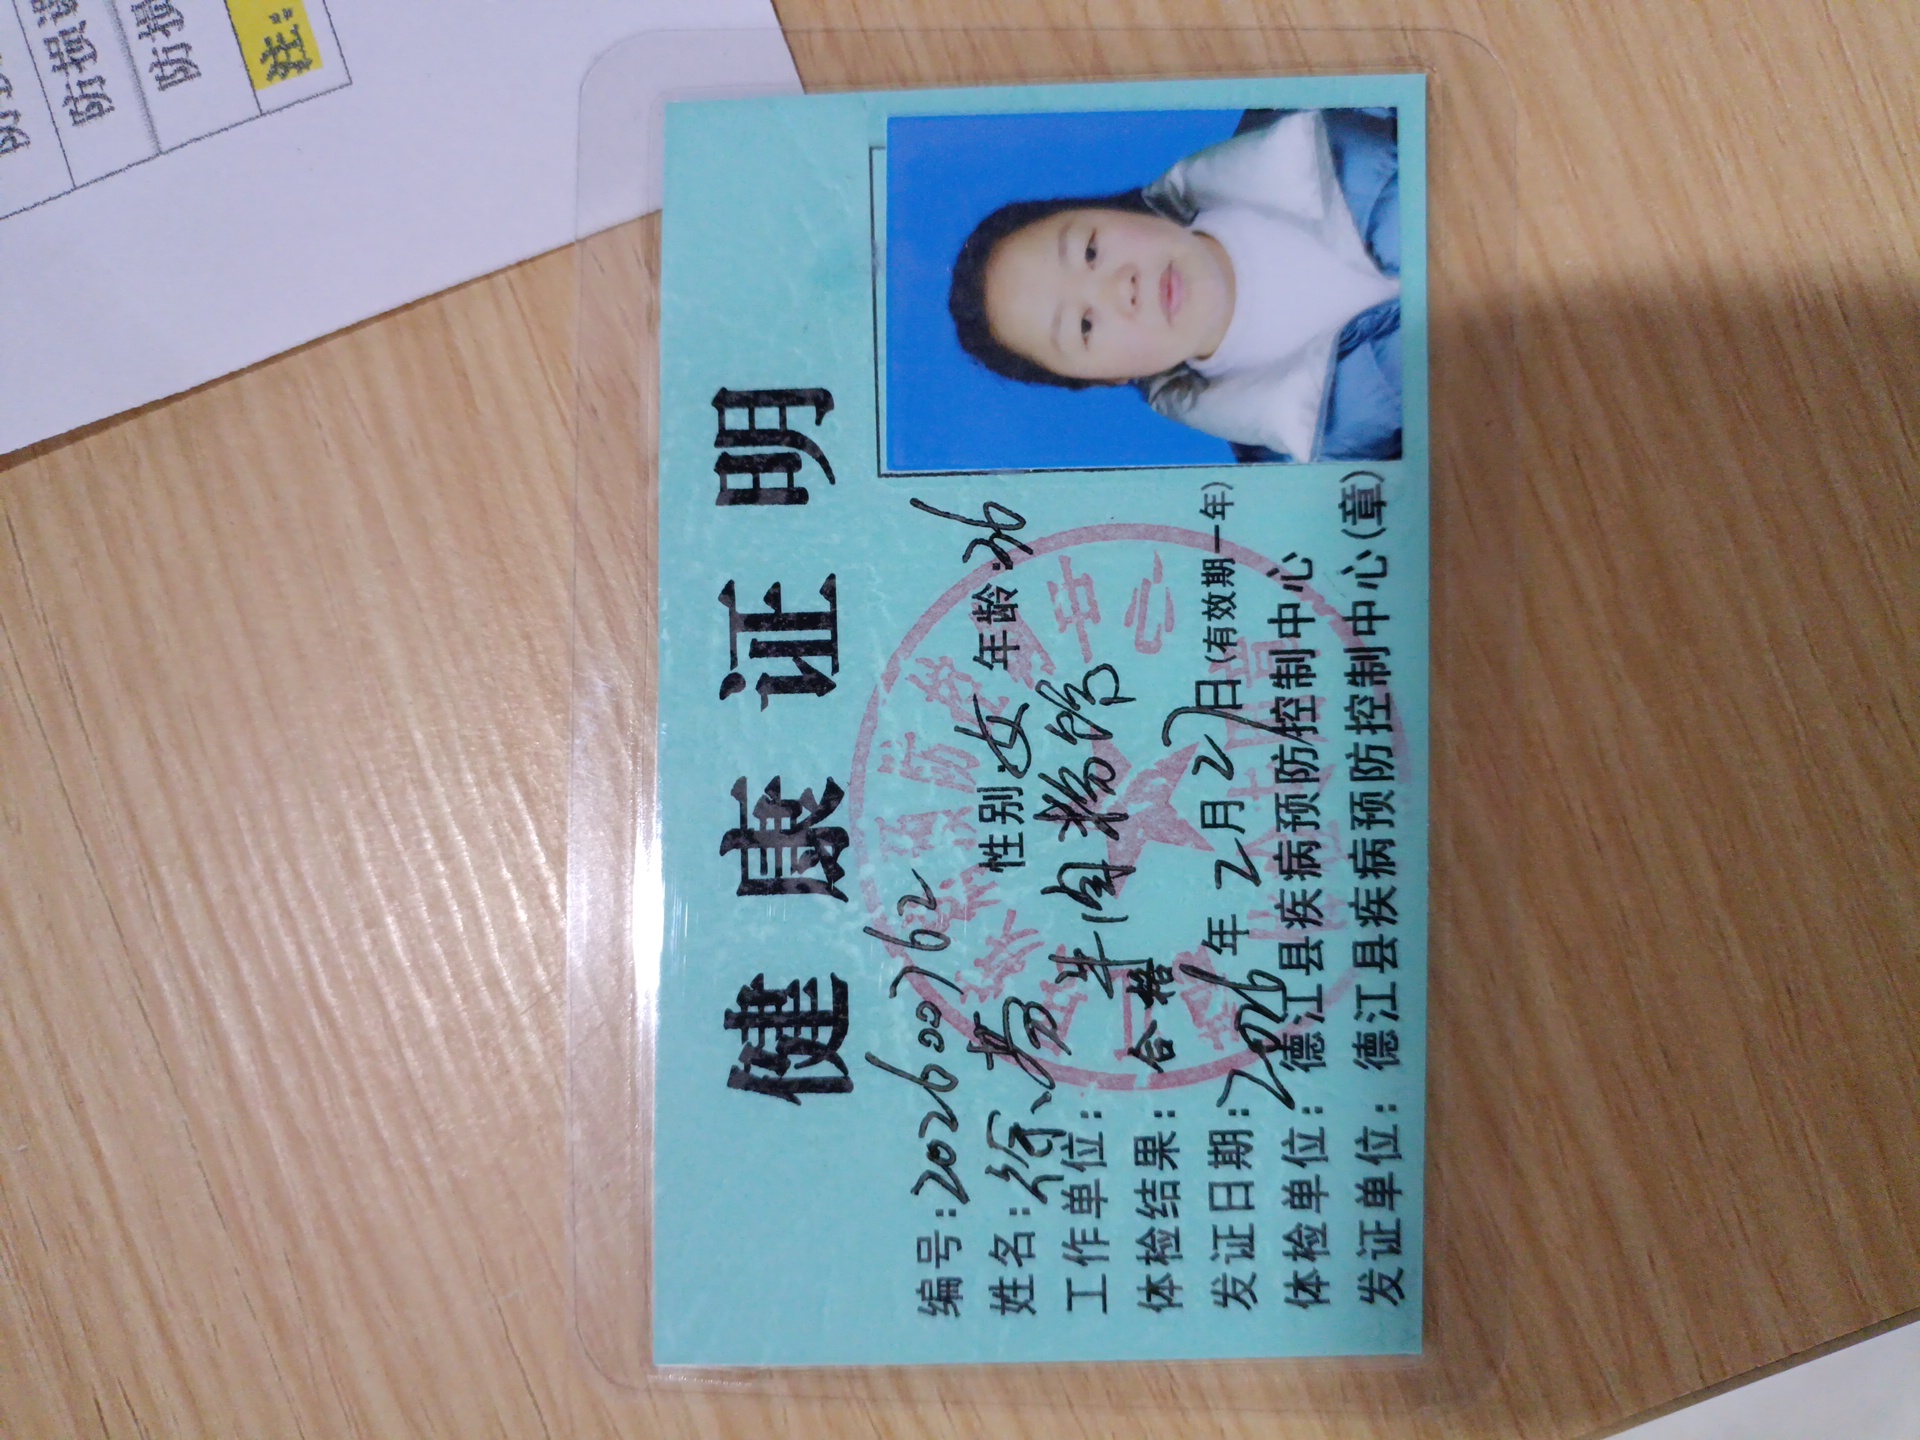 健康证明
编号：202600762
姓名：徐 性别：女 年龄：36
工作单位：牛肉粉馆
体检结果：合格
发证日期：2026年2月27日（有效期一年）
体检单位：德江县疾病预防控制中心
发证单位：德江县疾病预防控制中心（章）
防损
防损
注：